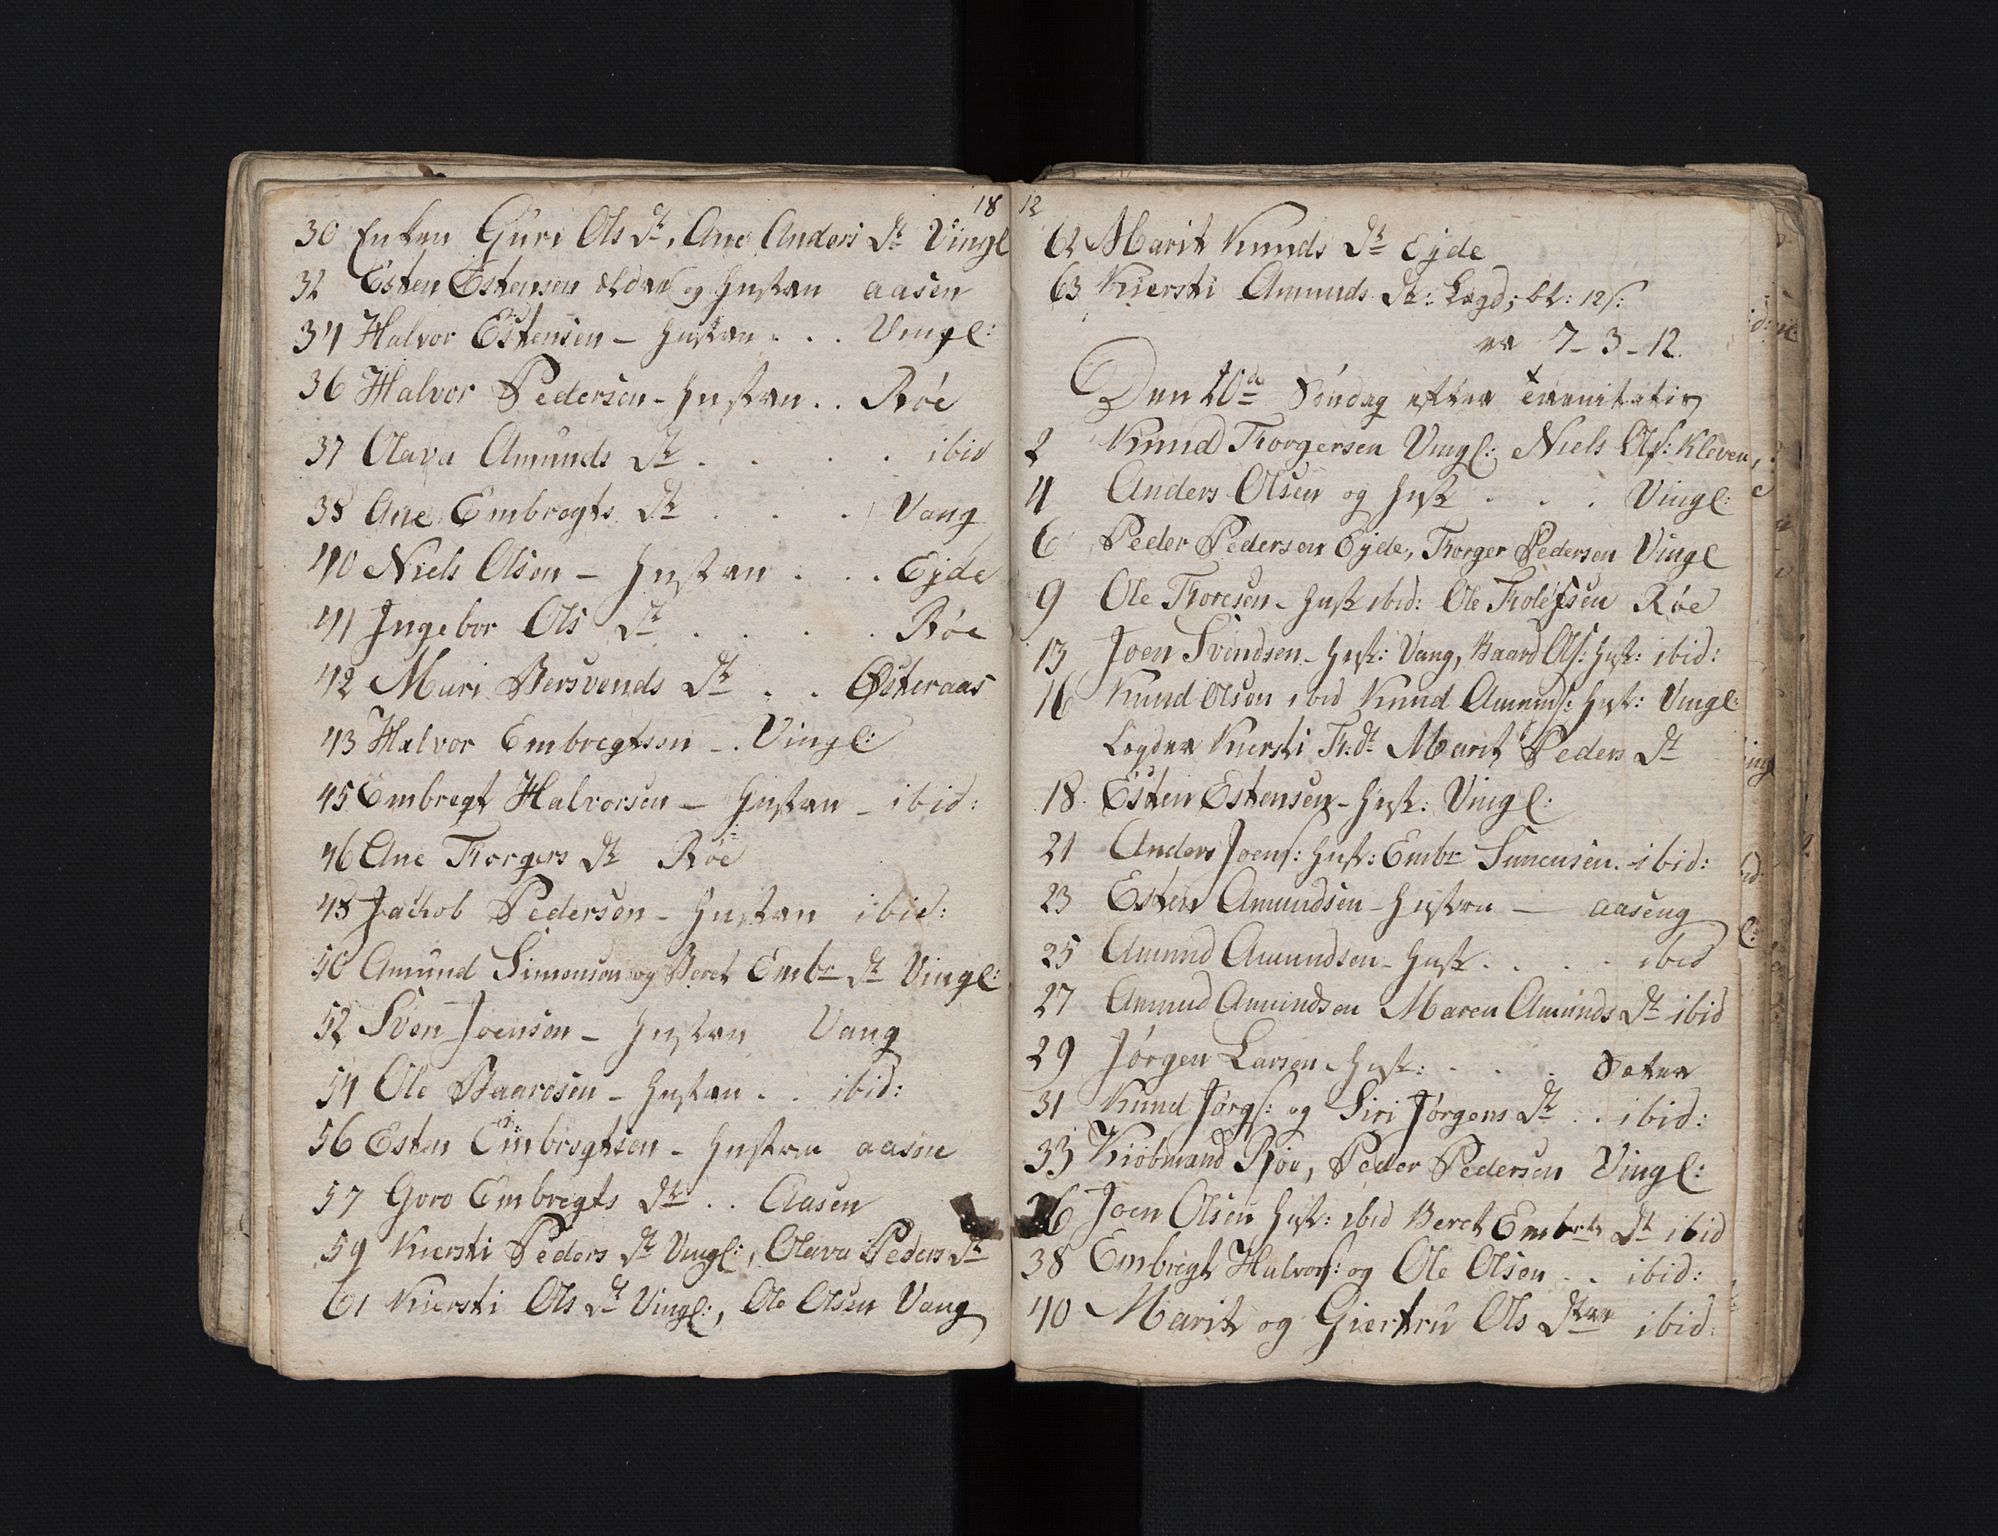 18
30 Enken Guri Ols Dt, Ane Anders Dt Vingl
32 Esten Estensen ældre og Hustru aasen
34 Halvor Estensen - Hustru . . . Vingl:
36 Halvor Pedersen - Hustru . . Røe
37 Olava Amunds Dt . . . . ibid
38 Ane Embregts Dt . . . Vang
40 Niels Olsen - Hustru . . . Ejde
41 Ingebor Ols Dt . . . . Røe
42 Muri Bersvends Dt . . Østeraas
43 Halvor Embregtsen - . Vingl:
45 Embregt Halvorsen - Hustru - ibid:
46 Ane Torgers Dt Røe
48 Jachob Pedersen - Hustru ibid:
50 Amund Simensen og Beret Embr Dt Vingl:
52 Sven Joensen - Hustru Vang
54 Ole Baardsen - Hustru . . ibid:
56 Esten Embregtsen - Hustru aasen
57 Goro Embregts Dt: . . Aasen
59 Kiersti Peders Dt Vingl:, Olava Peders Dt
61 Kiersti Ols Dt Vingl:, Ole Olsen Vang
12
62 Marit Knuds Dt Ejde
63 Kiersti Amunds Dt: Lægd; bl: 12 s:
er 7-3-12.
Den 20de Søndag efter Trenitatis
2 Knud Torgersen Vingl: Niels Ols: Kleven,
4 Anders Olsen og Hust . . . Vingl:
6 Peder Pedersen Ejde, Torger Pedersen Vingl
9 Ole Toresen - Hust ibid: Ole Tolefsen Røe
13 Joen Svendsen - Hust: Vang, Baard Ols: Hust: ibid:
16 Knud Olsen ibid Knud Amunds: Hust: Vingl:
Lægder Kiersti T: Dt Marit Peders Dt
18. Esten Estensen - Hust: Vingl:
21 Anders Joens: Hust: Embr Simensen. ibid:
23 Esten Amundsen - Hustru - aaseng
25 Amund Amundsen - Hust . . . . ibid
27 Amund Amundsen Maren Amunds Dt ibid
29 Jørgen Larsen - Hust: . . . Sæter
31 Knud Jørgs: og Siri Jørgens Dt . . ibid:
33 Kiøbmand Røe, Peder Pedersen Vingl:
36 Joen Olsen Hust: ibid Beret Embrts Dt ibid
38 Embregt Halvors: og Ole Olsen . . ibid:
40 Marit og Giertru Ols Dtre ibid: